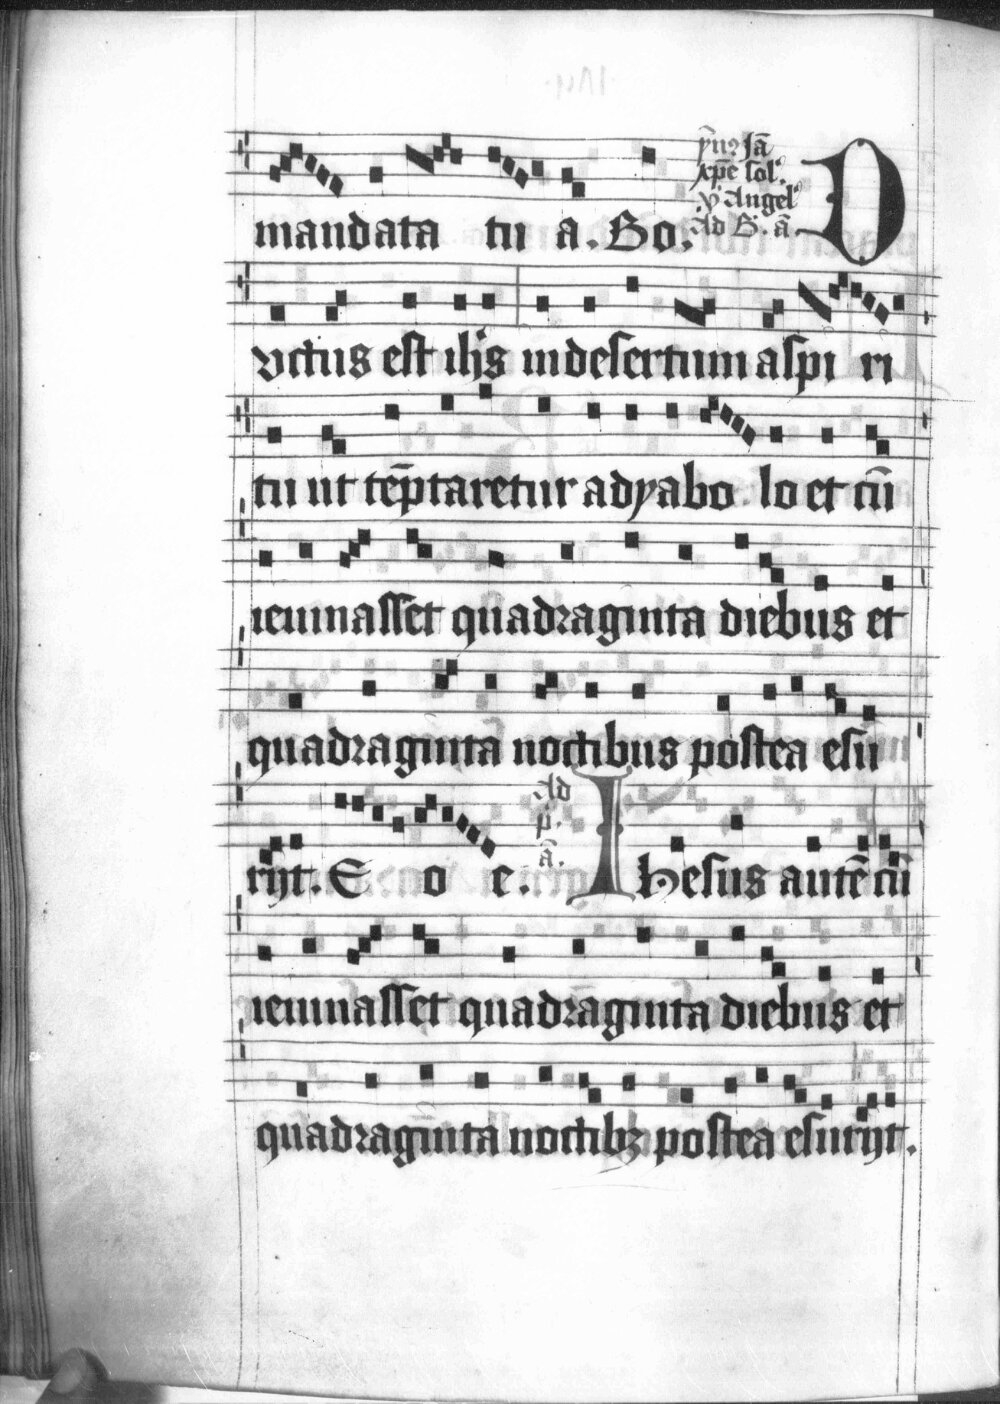 mandata tu a. Bo.
ẏmꝰ Iā
xp̄e sol.
.v. Angelꝰ
Ad B. ā.
D
uctus est ih̄s in desertum a spi ri
tu ut tēptaretur adyabo lo et cū
ieiunasset quadraginta diebus et
quadraginta noctibus postea esu
rijt. E o e.
Ad
p.
ā.
Ihesus autē cū
ieiunasset quadraginta diebus et
quadraginta noctibꝫ postea esurijt.